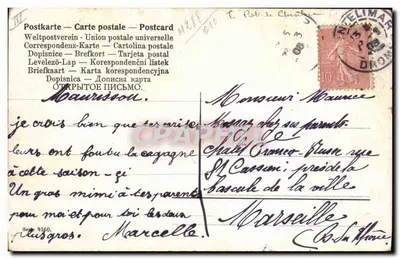 Postkarte – Carte postale – Postcard
Weltpostverein - Union postale universelle
Correspondenz-Karte - Cartolina postale
Dopisnice - Brefkort - Tarjeta postal
Levelező-Lap - Korespondenční lístek
Briefkaart - Karta korespondencyjna
Dopisnica - Дописна карта
ОТКРЫТОЕ ПИСЬМО.
Maurissou.
je crois bien que tes rivo
leurs ont foutu la cagagne
à cette saison-çi
Un gros mimi à tes parents
pour moi et pour toi les deux
plus gros. Marcelle.
Monsieur Maurice
chez ses parents
Chalet Franco- rue
St Cassien, près de la
bascule de la ville
Marseille
B. du Rhône